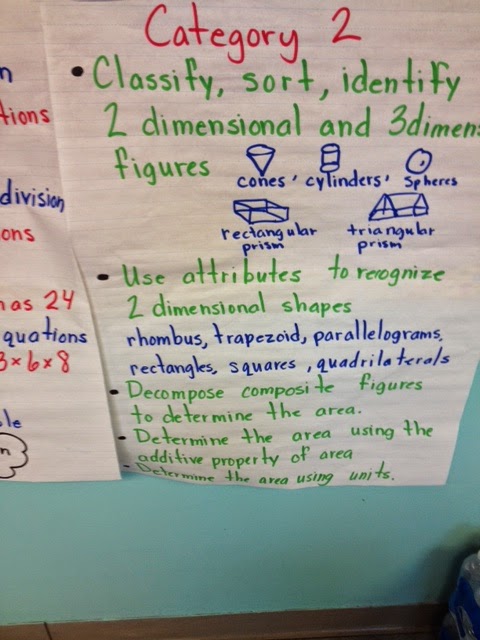 Category 2
• Classify, sort, identify
2 dimensional and 3dimen
figures
cones, cylinders, spheres
rectangular prism
triangular prism
• Use attributes to recognize
2 dimensional shapes
rhombus, trapezoid, parallelograms,
rectangles, squares, quadrilaterals
• Decompose composite figures
to determine the area.
• Determine the area using the
additive property of area
• Determine the area using units.
n
tions
division
ons
as 24
quations
3×6×8
le
n